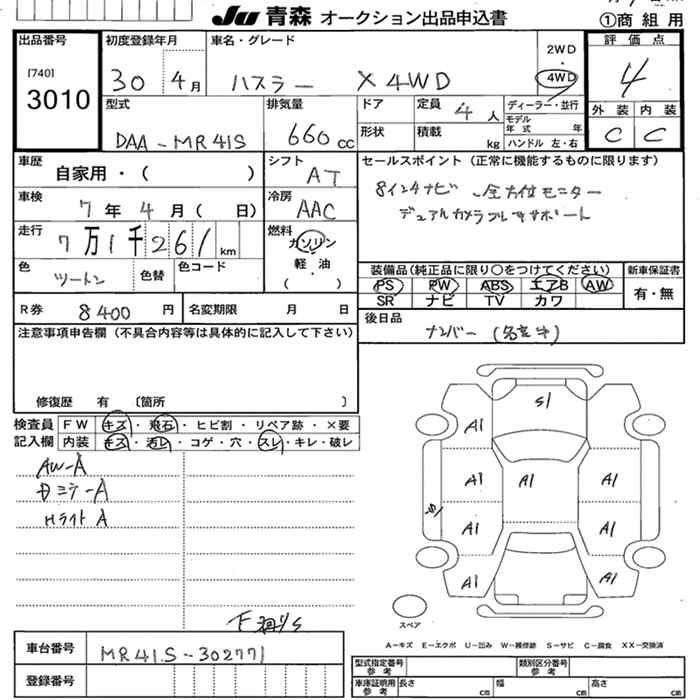 Ju 青森 オークション出品申込書
①商 組 用
出品番号
[740]
3010
初度登録年月
30 4月
車名・グレード
ハスラー X 4WD
2WD
・
4WD
評価点
4
外装 内装
C C
型式
DAA-MR41S
排気量
660 cc
ドア
定員 4人
ディーラー・並行
モデル年式 年
形状
積載 kg
ハンドル 左・右
車歴
自家用・( )
シフト
AT
セールスポイント (正常に機能するものに限ります)
8インチナビ 全方位モニター
デュアルカメラブレーキサポート
車検
7年 4月( 日)
冷房
AAC
走行
7万1千261km
燃料
ガソリン
軽・油
( )
色
ツートン
色替
色コード
装備品(純正品に限り○をつけてください)
PS PW ABS エアB AW
SR ナビ TV カワ
新車保証書
有・無
R券
8400円
名変期限 月 日
後日品
ナンバー
注意事項申告欄 (不具合内容等は具体的に記入して下さい)
修復歴 有 〔箇所 〕
検査員記入欄
FW キズ・飛石・ヒビ割・リペア跡・×要
内装 キズ・汚レ・コゲ・穴・スレ・キレ・破レ
AW-A
Dミラ-A
Hライト A
S1
A1
A1 A1 A1
S1
A1 A1
A1 A1
スペア
A=キズ E=エクボ U=凹み W=補修跡 S=サビ C=腐食 XX=交換済
車台番号
MR41S-302771
登録番号
型式指定番号 参考
類別区分番号 参考
車庫証明用 参考
長さ cm
幅 cm
高さ cm